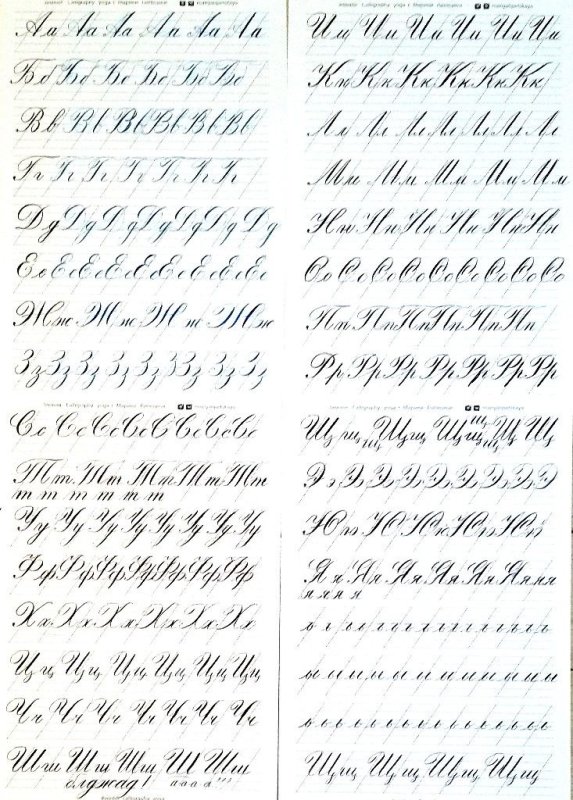 Аа Аа Аа Аа Аа Аа
Бб Бб Бб Бб Бб Бб
Вв Вв Вв Вв Вв Вв
Гг Гг Гг Гг Гг Гг
Дд Дд Дд Дд Дд Дд Дд
Ее Ее Ее Ее Ее Ее Ее Ее
Жж Жж Жж Жж
Зз Зз Зз Зз Зз Зз Зз Зз
Ии Ии Ии Ии Ии Ии
Кк Кк Кк Кк Кк Кк
Лл Лл Лл Лл Лл Лл
Мм Мм Мм Мм Мм
Нн Нн Нн Нн Нн Нн
Оо Оо Оо Оо Оо Оо Оо Оо Оо
Пп Пп Пп Пп Пп Пп
Рр Рр Рр Рр Рр Рр Рр
Сс Сс Сс Сс Сс Сс Сс
Тт Тт Тт Тт Тт
т т т т т т
Уу Уу Уу Уу Уу Уу Уу Уу
Фф Фф Фф Фф Фф Фф
Хх Хх Хх Хх Хх Хх
Цц Цц Цц Цц Цц Цц
Чч Чч Чч Чч Чч Чч
Шш Шш Шш Ш Шш
Щщ щ Щщ Щщ щ щ Щ Щ
Ээ Ээ Ээ Ээ Ээ Ээ Ээ Ээ
Юю Ю Юю Юю Юю
Яя Яя Яя Яя Яя Яя ня
я я я я
ъ ъ ъ ъ ъ ъ ъ ъ ъ ъ ъ ъ ъ
ы ы ы ы ы ы ы ы ы ы ы ы
ь ь ь ь ь ь ь ь ь ь ь ь ь
Щщ Щщ Щщ Щщ